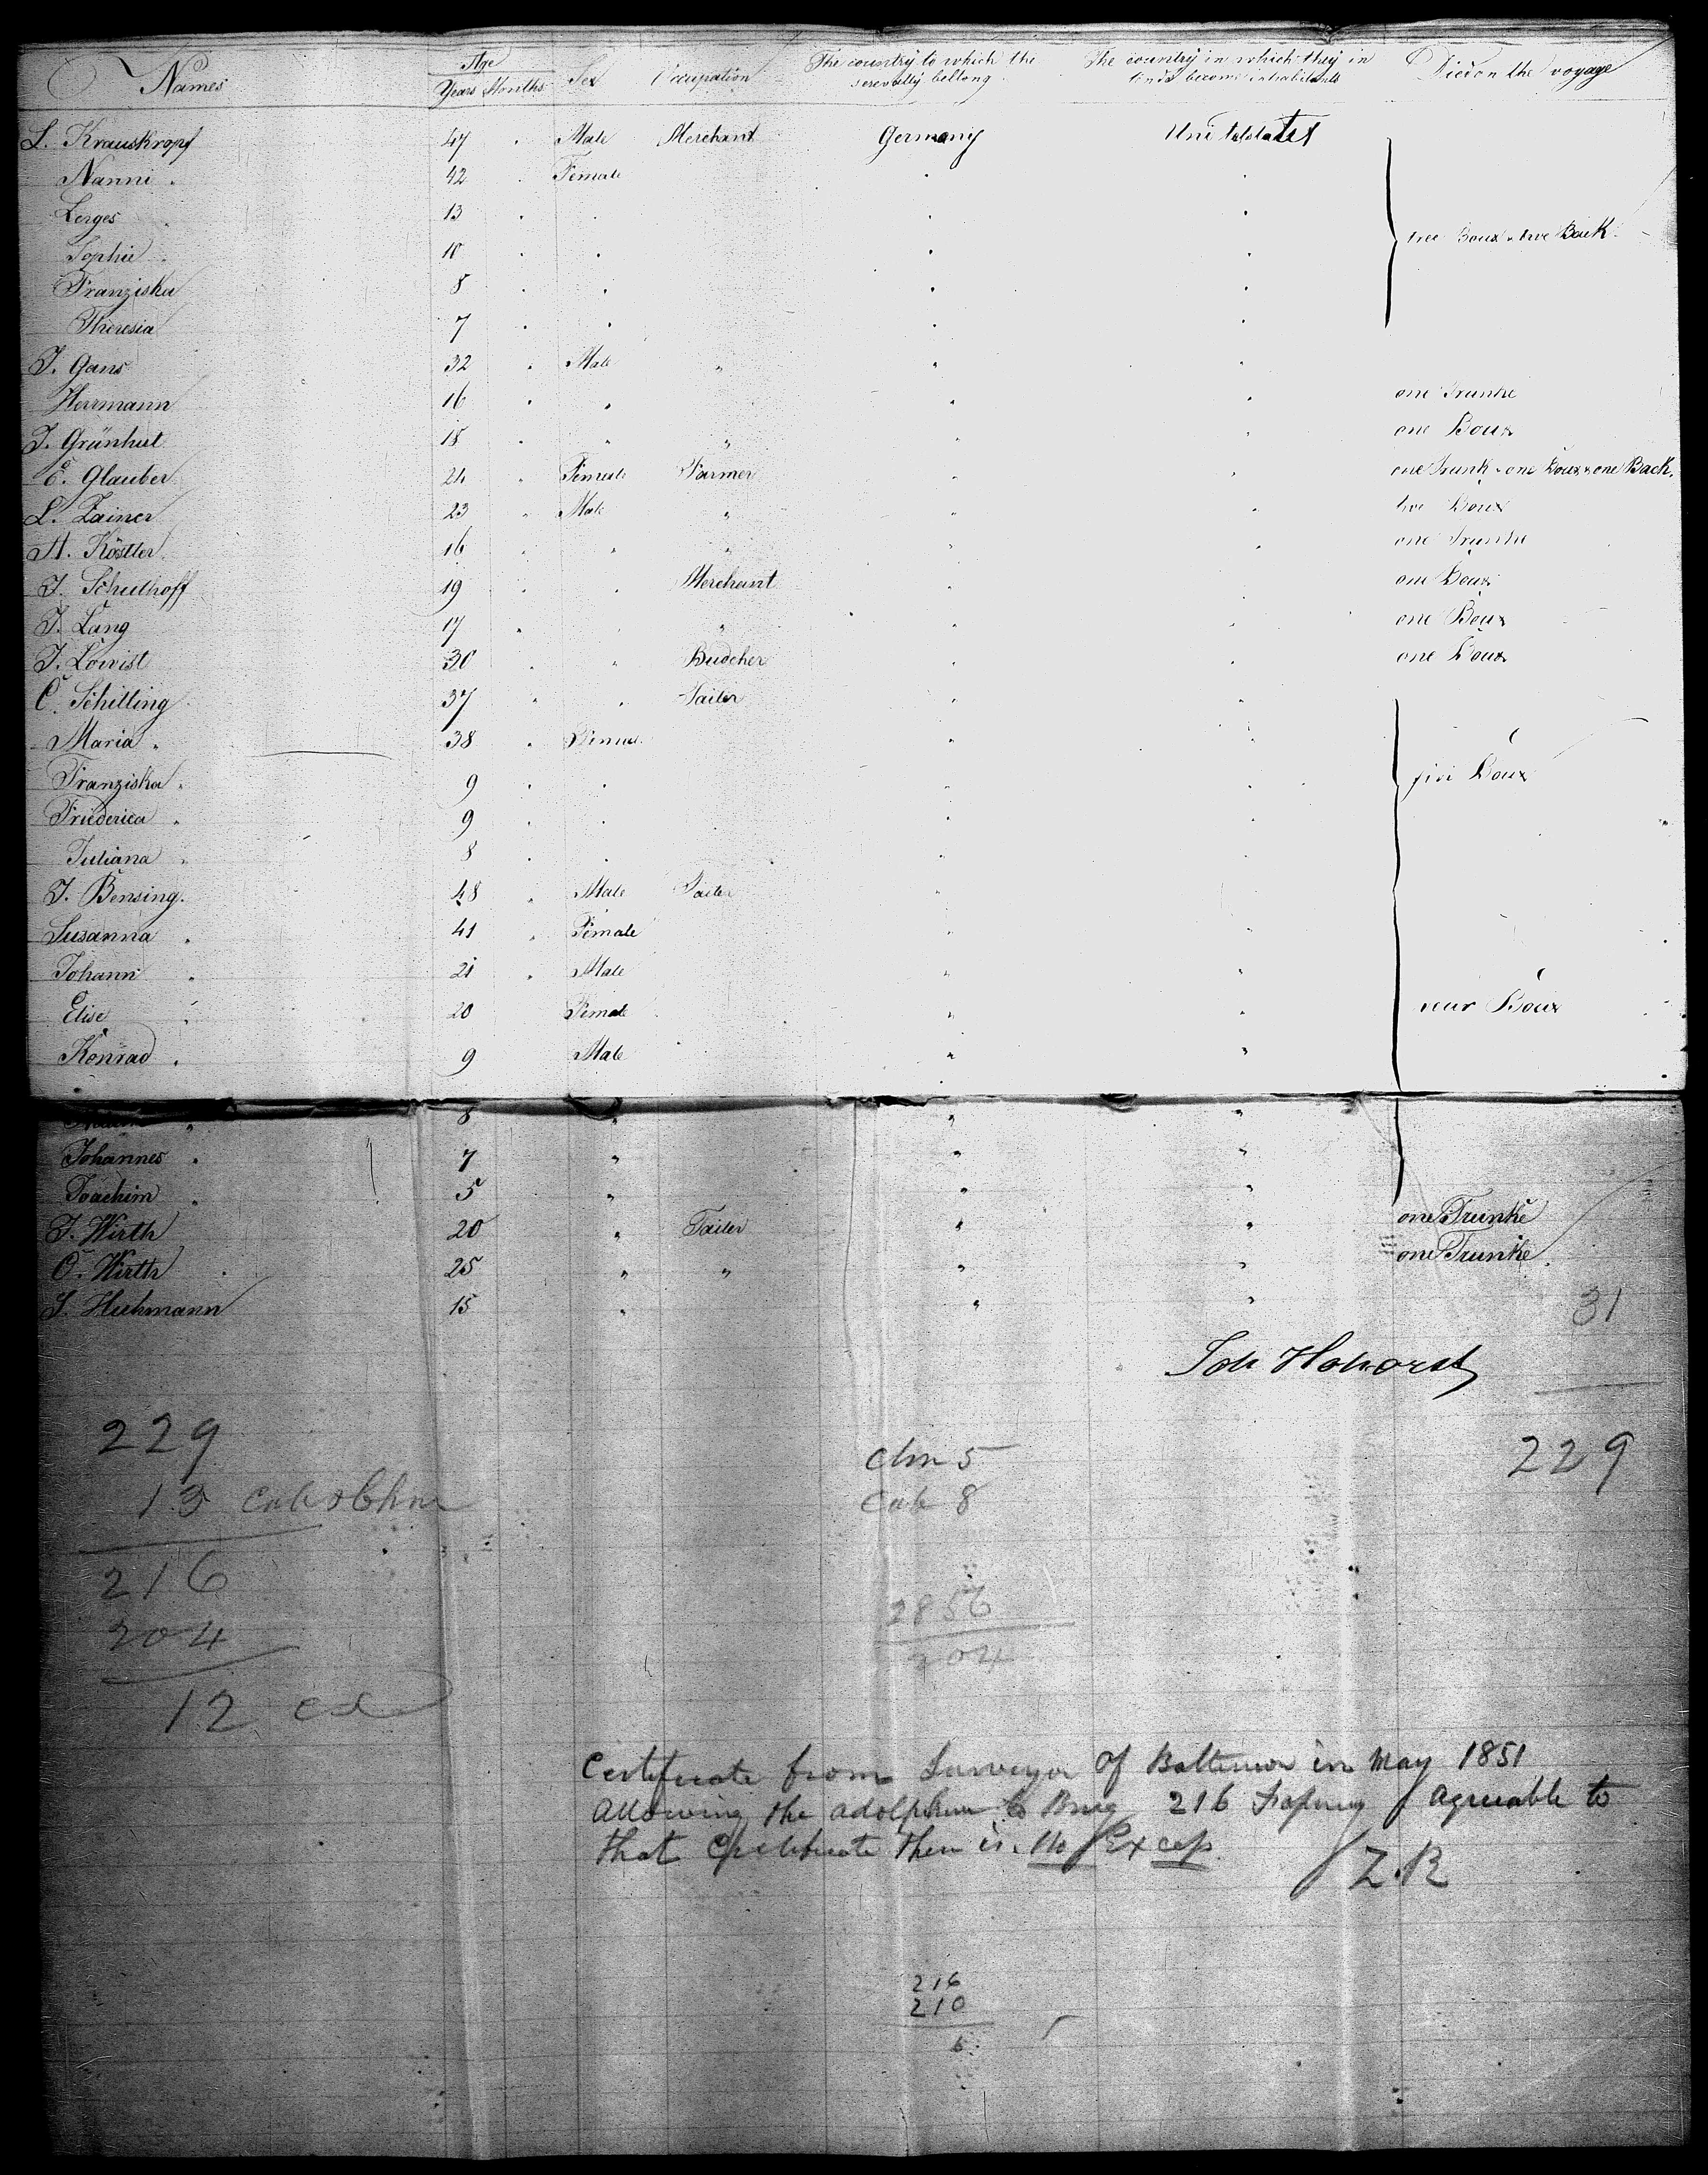 Names Age Years Months Sex Occupation The country to which the severally belong The country in which they in tend to become inhabitants Died on the voyage
L. Krauskropf 47 " Male Merchant Germany United states
Nanni " 42 " Female " "
13 " " " "
Sophie " 10 " " " " Boux Back
Franziska 8 " " " "
Theresia 7 " " " "
J. Gans 32 " Male " " "
Herrmann 16 " " " " one Trunke
J. Grünhut 18 " " " " " one Boux
E. Glauber 24 " Female Farmer " " one Trunk one Boux one Back.
L. Zainer 23 " Male " " " Boux
A. Köstler 16 " " " " " one Trunke
J. Schulhoff 19 " " Merchant " " one Boux
J. Lang 17 " " " " " one Boux
J. Löwist 30 " " Budcher " " one Boux
C. Schilling 37 " " Tailer " "
Maria " 38 " Female " "
Franziska " 9 " " " " five Boux
Friederica " 9 " " " "
Juliana " 8 " " " "
J. Bensing. 48 " Male Tailer " "
Susanna " 41 " Female " "
Johann " 21 " Male " "
Elise " 20 Female " " Boux
Konrad " 9 Male " "
" 8 " " "
Johannes " 7 " " "
Joachim " 5 " " "
J. Wirth 20 " Tailer " " one Trunke
O. Wirth 25 " " " " one Trunke
Huhmann 15 " " "
31
Joh Hohorst
229 229
chn 5
13 cab & Chn
cab 8
216
2856
204
204
12 ex
Certificate from Surveyor of Baltimore in May 1851
Allowing the Adolphine to Bring 216 agreable to
that Certificate there is no Excess
Z.B
216
210
6